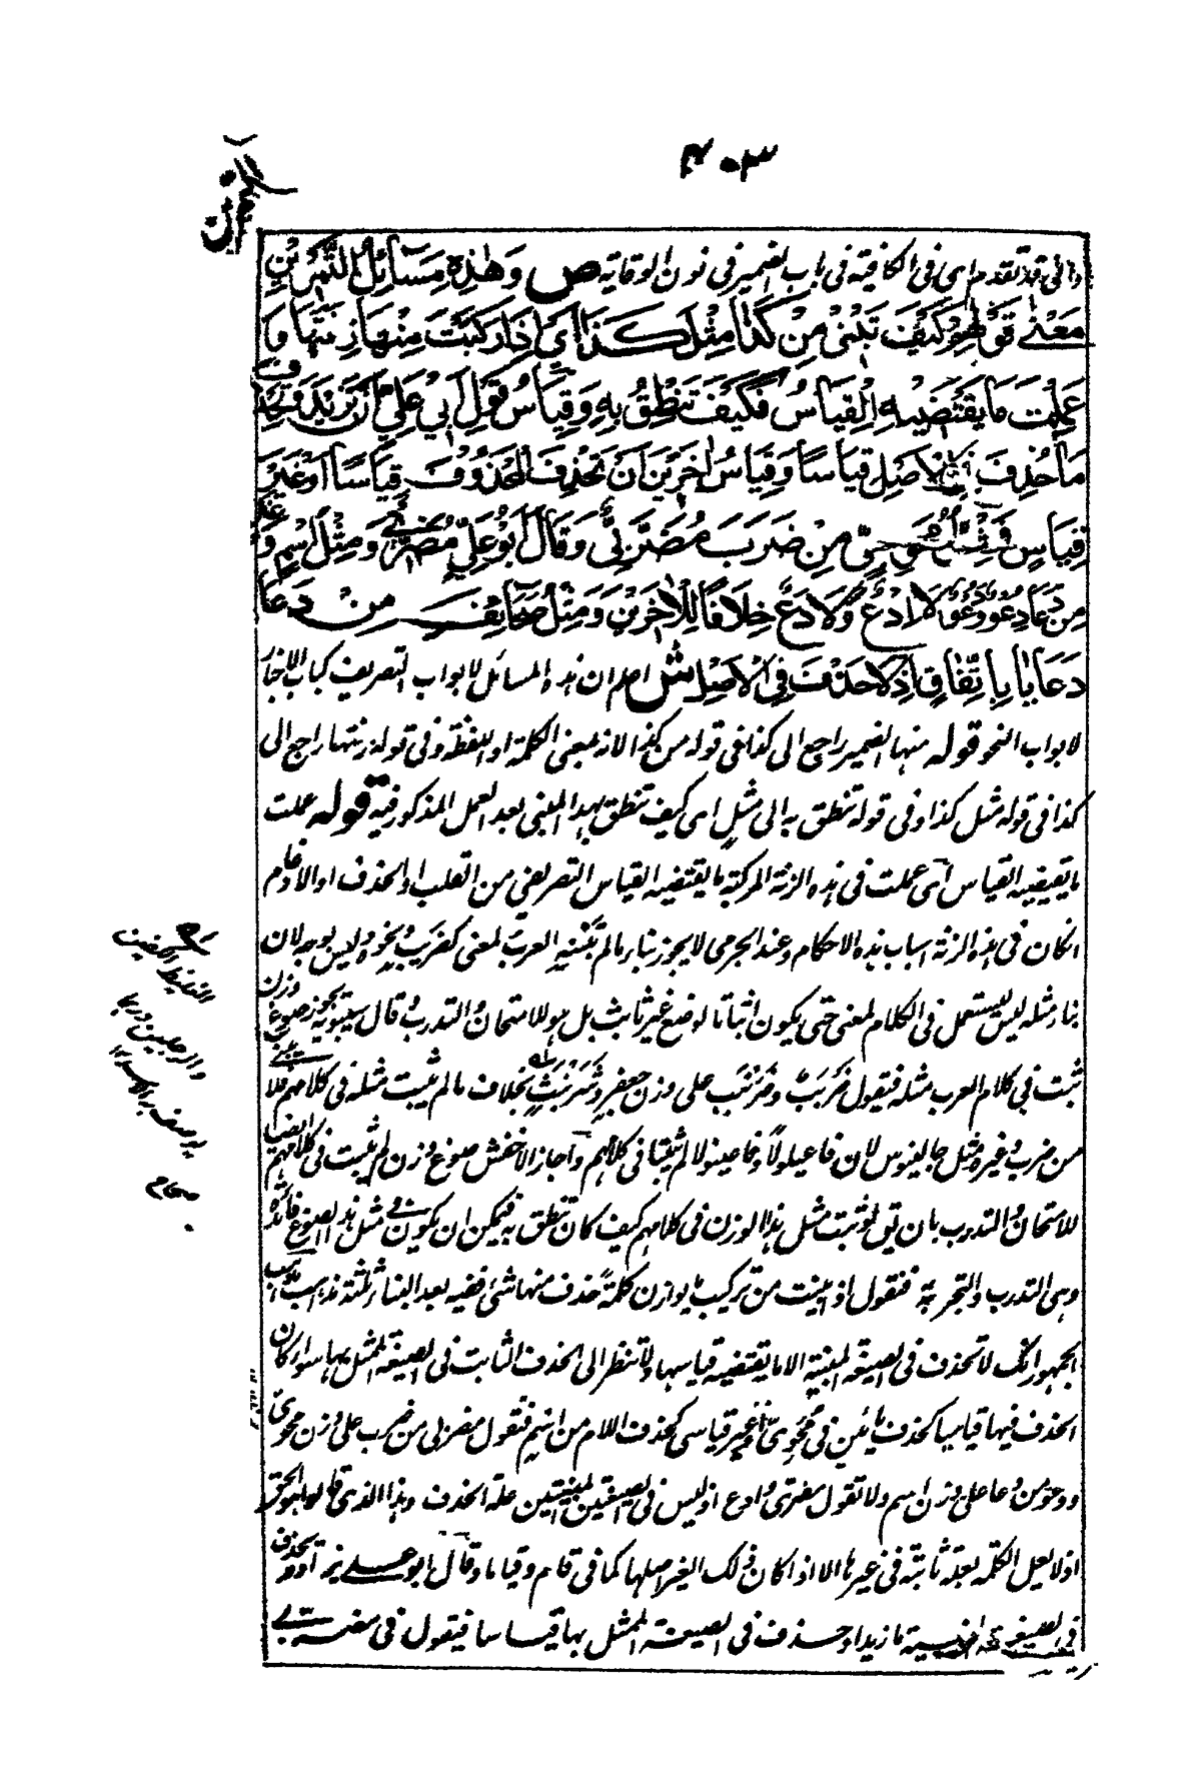 ٤٠٣
التمرين
وقد تقدم اى فى الكافية فى باب الضمير فى نون الوقاية ص وَهٰذِهِ مَسَائِلُ التَّمْرِيْنِ
مَعْنٰى قَوْلِهِمْ كَيْفَ تَبْنِىْ مِنْ كَذَا مِثْلَ كَذَا اَىْ اِذَا رَكَّبْتَ مِنْهَا زِنَتَهَا وَ
عَمِلْتَ مَا يَقْتَضِيْهِ الْقِيَاسُ فَكَيْفَ تَنْطِقُ بِهٖ وَقِيَاسُ قَوْلِ اَبِىْ عَلِىٍّ اَنْ تَزِيْدَ وَتَحْذِفَ
مَا حُذِفَ فِى الْاَصْلِ قِيَاسًا وَقِيَاسُ اٰخَرِيْنَ اَنْ تَحْذِفَ الْمَحْذُوْفَ قِيَاسًا اَوْ غَيْرَ
قِيَاسٍ فَمِثْلُ مُحَوِىٍّ مِنْ ضَرَبَ مُضَرِّبِىٌّ وَقَالَ اَبُوْ عَلِىٍّ مُضَرِىٌّ وَمِثْلُ اسْمٍ وَغَدٍ
مِنْ دَعَا دِعْوٌ وَدَعْوٌ لَا اِدْعٌ وَلَا دَعٌ خِلَافًا لِلْاٰخَرِيْنَ وَمِثْلُ صَحَائِفَ مِنْ دَعَا
دَعَايَا بِاتِّفَاقٍ اِذْ لَا حَذْفَ فِى الْاَصْلِ ش اعلم ان هذه المسائل لابواب التصريف كباب الاخبار
لابواب النحو قوله منها الضمير راجع الى كذا فى قوله من كذا لانه بمعنى الكلمة او اللفظة وفى قوله زنتها راجع الى
كذا فى قوله مثل كذا وفى قوله تنطق به الى مثل اى كيف تنطق بهذا المبنى بعد العمل المذكور فيه قوله عملت
ما يقتضيه القياس اى عملت فى هذه الزنة المركبة ما يقتضيه القياس التصريفى من القلب او الحذف او الادغام
ان كان فى هذه الزنة اسباب هذه الاحكام وعند الجرمى لا يجوز بناء ما لم تبنه العرب لمعنى كضربب ونحوه وليس بوجه لان
بناء مثله ليس ليستعمل فى الكلام لمعنى حتى يكون اثباتا لوضع غير ثابت بل هو للامتحان والتدرب وقال سيبويه يجوز صوغ وزن
ثبت فى كلام العرب مثله فتقول ضربب وضرنبب على وزن جعفر وشرنبث بخلاف ما لم يثبت مثله فى كلامهم فلا يبنى
من ضرب وغيره مثل جالينوس لان فاعيلولا وفاعينولا لم يثبتا فى كلامهم واجاز الاخفش صوغ وزن لم يثبت فى كلامهم ايضا
للامتحان والتدرب بان يقال لو ثبت مثل هذا الوزن فى كلامهم كيف كان تنطق به فيمكن ان يكون فى مثل هذا الصوغ فائدة
وهى التدرب والتجربة فنقول اذا بنيت من تركيب ما يوازن كلمة حذف منها شئ ففيه بعد البناء ثلثة مذاهب مذهب
الجمهور انك لا تحذف فى الصيغة المبنية الا ما يقتضيه قياسها ولا تنظر الى الحذف الثابت فى الصيغة الممثل بها سواء كان
الحذف فيها قياسيا كحذف يائين فى محوى او غير قياسى كحذف اللام من اسم فتقول مضربى من ضرب على وزن محوى
ودعو من دعا على وزن اسم ولا تقول مضرى وادع اذ ليس فى الصيغتين المبنيتين علة الحذف وهذا الذى قالوا هو الحق
اذ لا يعل الكلمة بعلة ثابتة فى غيرها الا اذا كان ذلك الغير اصلها كما فى قام وقيام وقال ابو على تزيد وتحذف
فى الصيغة المبنية ما زيد او حذف فى الصيغة الممثل بها قياسا فيقول فى مضربى
الغليظ الكفين
والرجلين وربما
يوصف به الاسد ١٢
صحاح